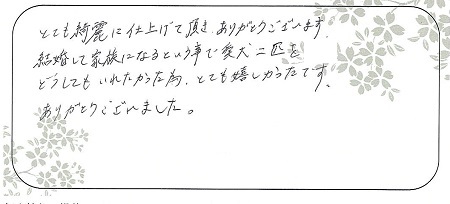 とても綺麗に仕上げて頂き、ありがとうございます。
結婚して家族になるという事で愛犬二匹を
どうしてもいれたかった為、とても嬉しかったです。
ありがとうございました。